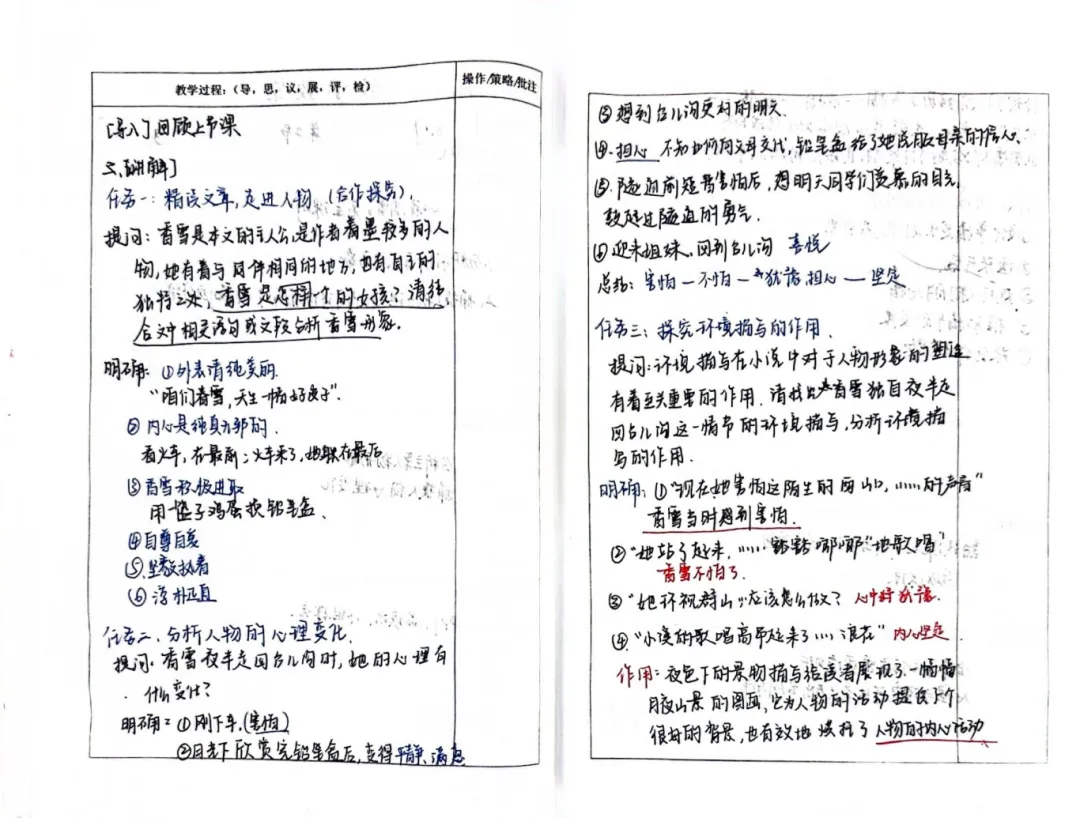 教学过程：（导，思，议，展，评，检）
操作/策略/批注
[导入] 回顾上节课
讲解]
任务一：精读文章，走进人物（合作探究）
提问：香雪是本文的主人公，是作者着墨较多的人
物，她有着与同伴相同的地方，也有自己的
独特之处，香雪是怎样一个的女孩？请结
合文中相关语句或文段分析香雪形象．
明确：①外表清纯美丽．
“咱们香雪，天生一幅好房子”．
②内心是纯真无邪的．
看火车，在最前；火车来了，她躲在最后
③香雪积极进取
用一篮子鸡蛋换铅笔盒．
④自尊自爱
⑤坚毅执着
⑥淳朴正直
任务二、分析人物的心理变化．
提问：香雪夜半走回台儿沟时，她的心理有
什么变化？
明确：①刚下车，（害怕）
②月光下欣赏完铅笔盒后，变得平静、满意
③想到台儿沟更好的明天．
④担心 不知如何向父母交代，铅笔盒给了她说服母亲的信心．
⑤隧道前短暂害怕后，想明天同学们羡慕的目光
鼓起过隧道的勇气．
⑥迎来姐妹、回到台儿沟 喜悦
总结：害怕—不怕—犹豫，担心—坚定
任务三：探究环境描写的作用．
提问：环境描写在小说中对于人物形象的塑造
有着至关重要的作用．请找出香雪独自夜半走
回台儿沟这一情节的环境描写，分析环境描
写的作用．
明确：①“现在她害怕这陌生的西山口，……的声音”
香雪当时感到害怕．
②“她站了起来，……豁豁啷啷”地歌唱”
香雪不怕了．
③“她环视群山……应该怎么做？ 心中有犹豫．
④“小溪的歌唱高昂起来了……浪花” 内心坚定
作用：夜色下的景物描写给读者展现了一幅幅
月夜山景的图画，它为人物的活动提供了个
很好的背景，也有效地烘托了人物的内心活动